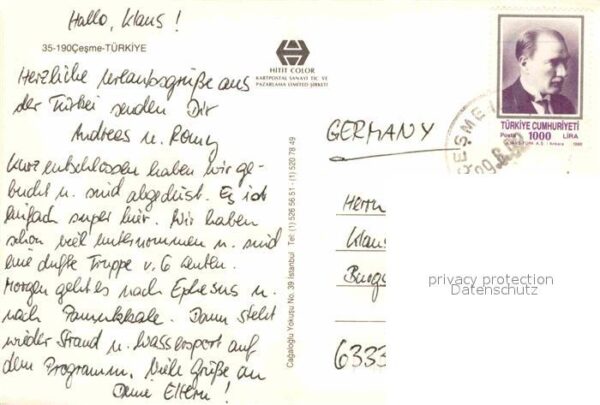 Hallo, Klaus!
35-190Çeşme-TÜRKİYE
HITIT COLOR
KARTPOSTAL SANAYİ TİC VE
PAZARLAMA LIMITED ŞİRKETİ
Herzliche Urlaubsgrüße aus
der Türkei senden Dir
Andreas u. Romy
Kurz entschlossen haben wir ge-
bucht u. sind abgedüst. Es ist
einfach super hier. Wir haben
schon viel unternommen u. sind
eine dufte Truppe v. 6 Leuten.
Morgen geht es nach Ephesus u.
nach Pamukkale. Dann steht
wieder Strand u. Wassersport auf
dem Programm. Viele Grüße an
Deine Eltern!
Cağaloğlu Yokuşu No. 39 İstanbul Tel: (1) 526 56 51 - (1) 520 78 49
TÜRKİYE CUMHURİYETİ
Posta 1000 LİRA
ÇEŞME
GERMANY
Herrn
Klaus
Burgs
6333
privacy protection
Datenschutz